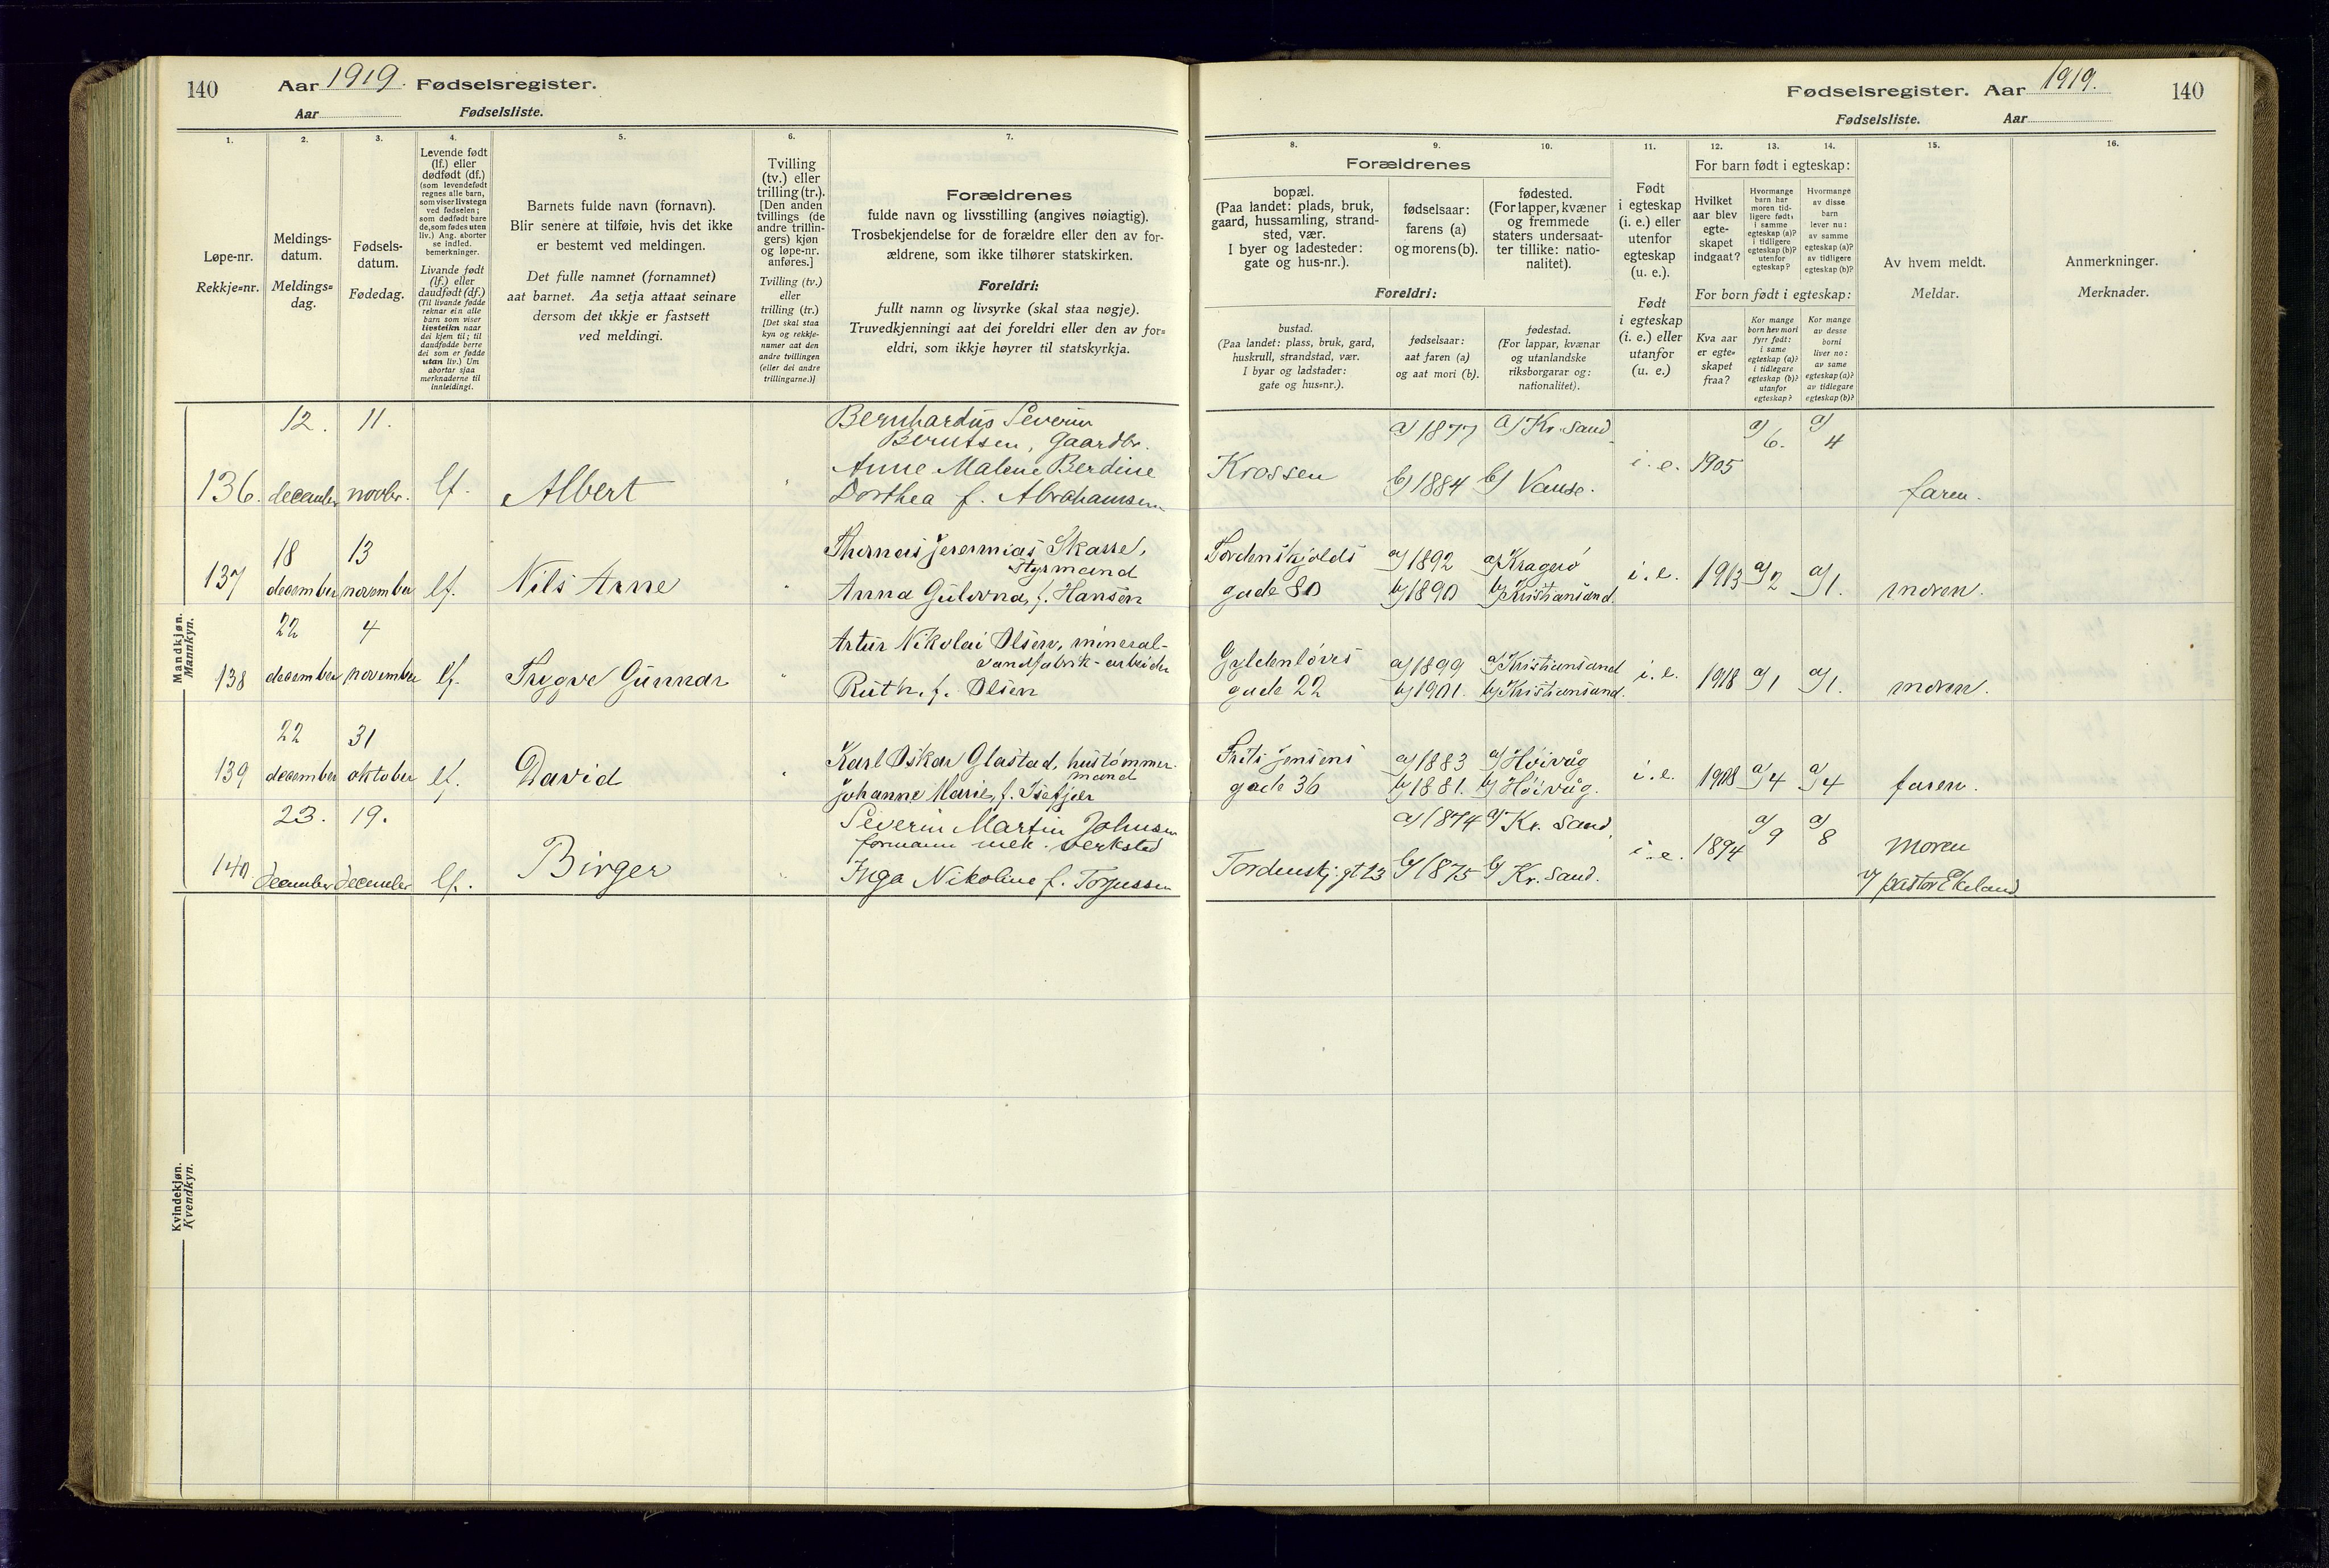 140
Aar 1919. Fødselsregister.
Aar Fødselsliste.
1.
2.
3.
4.
5.
6.
7.
Løpe-nr.
Rekkje=nr.
Meldings-
datum.
Meldings=
dag.
Fødsels-
datum.
Fødedag.
Levende født
(lf.) eller
dødfødt (df.)
(som levendefødt
regnes alle barn,
som viser livstegn
ved fødselen;
som dødfødt bare
de, som fødes uten
liv.) Ang. aborter
se indled.
bemerkninger.
Livande født
(lf.) eller
daudfødt (df.)
(Til livande fødde
reknar ein alle
barn som viser
livsteikn naar
dei kjem til; til
daudfødde berre
dei som er fødde
utan liv.) Um
abortar sjaa
merknaderne til
innleidingi.
Barnets fulde navn (fornavn).
Blir senere at tilføie, hvis det ikke
er bestemt ved meldingen.
Det fulle namnet (fornamnet)
aat barnet. Aa setja attaat seinare
dersom det ikkje er fastsett
ved meldingi.
Tvilling
(tv.) eller
trilling (tr.).
[Den anden
tvillings (de
andre trillin-
gers) kjøn
og løpe-nr.
anføres.]
Tvilling (tv.)
eller
trilling (tr.)
[Det skal staa
kyn og rekkje-
numer aat den
andre tvillingen
(eller dei andre
trillingarne.)]
Forældrenes
fulde navn og livsstilling (angives nøiagtig).
Trosbekjendelse for de forældre eller den av for-
ældrene, som ikke tilhører statskirken.
Foreldri:
fullt namn og livsyrke (skal staa nøgje).
Truvedkjenningi aat dei foreldri eller den av for=
eldri, som ikkje høyrer til statskyrkja.
Mandkjøn.
Mannkyn.
12. 11.
136. december novbr. lf. Albert "
Bernhardus Severin
Berntsen, Gaardbr.
Anne Malene Berdine
Dorthea f. Abrahamsen
18 13
137 desember november lf. Nils Arne "
Thomas Jeremias Skarre,
styrmand
Anna Gulovna, f. Hansen
22 4
138 desember november lf. Trygve Gunnar "
Artur Nikolai Olsen, mineral-
vandfabrik-arbeider
Ruth, f. Olsen
22 31
139 desember oktober lf. David "
Karl Oskar Glastad, hustømmer-
mand
Johanne Marie, f. Isefjær
23. 19.
140 december december lf. Birger "
Severin Martin Johnsen
formann mek. verksted
Inga Nikoline f. Torjussen
Kvindekjøn.
Kvendkyn.
Fødselsregister. Aar 1919. 140
Fødselsliste. Aar
8.
9.
10.
11.
12.
13.
14.
15.
16.
Forældrenes
bopæl.
(Paa landet: plads, bruk,
gaard, hussamling, strand-
sted, vær.
I byer og ladesteder:
gate og hus-nr.).
fødselsaar:
farens (a)
og morens (b).
fødested.
(For lapper, kvæner
og fremmede
staters undersaat-
ter tillike: natio-
nalitet).
Foreldri:
bustad.
(Paa landet: plass, bruk, gard,
huskrull, strandstad, vær.
I byar og ladstader:
gate og hus=nr.).
fødselsaar:
aat faren (a)
og aat mori (b).
fødestad.
(For lappar, kvænar
og utanlandske
riksborgarar og:
nationalitet).
Født
i egteskap
(i. e.) eller
utenfor
egteskap
(u. e.).
Født
i egteskap
(i. e.) eller
utanfor
(u. e.)
For barn født i egteskap:
Hvilket
aar blev
egte-
skapet
indgaat?
Hvormange
barn har
moren tid-
ligere født:
i samme
egteskap (a)?
i tidligere
egteskap (b)?
utenfor
egteskap?
Hvormange
av disse
barn
lever nu:
av samme
egteskap (a)?
av tidligere
egteskap (b)?
For born født i egteskap:
Kva aar
er egte=
skapet
fraa?
Kor mange
born hev mori
fyrr født:
i same
egteskap (a)?
i tidlegare
egteskap (b)?
utanfor
egteskap?
Kor mange
av desse
borni
liver no:
av same
egteskap (a)?
av tidlegare
egteskap (b)?
Av hvem meldt.
Meldar.
Anmerkninger.
Merknader.
Krossen
a) 1877 a) Kr. sand
b) 1884 b) Vanse.
i. e. 1905 a) 6. a) 4 faren.
Tordenskjolds
gade 80
a) 1892 a) Kragerø
b) 1890 b) Kristiansand.
i. e. 1913 a) 2 a) 1. moren.
Gyldenløves
gade 22
a) 1899 a) Kristiansand
b) 1901. b) Kristiansand.
i. e. 1918 a) 1 a) 1. moren.
Frits Jensens
gade 36
a) 1883 a) Høivåg
b) 1881. b) Høivåg.
i. e. 1908 a) 4 a) 4 faren.
Tordenskj. gt 23
a) 1874 a) Kr. sand,
b) 1875 b) Kr. sand.
i. e. 1894 a) 9 a) 8 moren
v/ pastor Ekeland